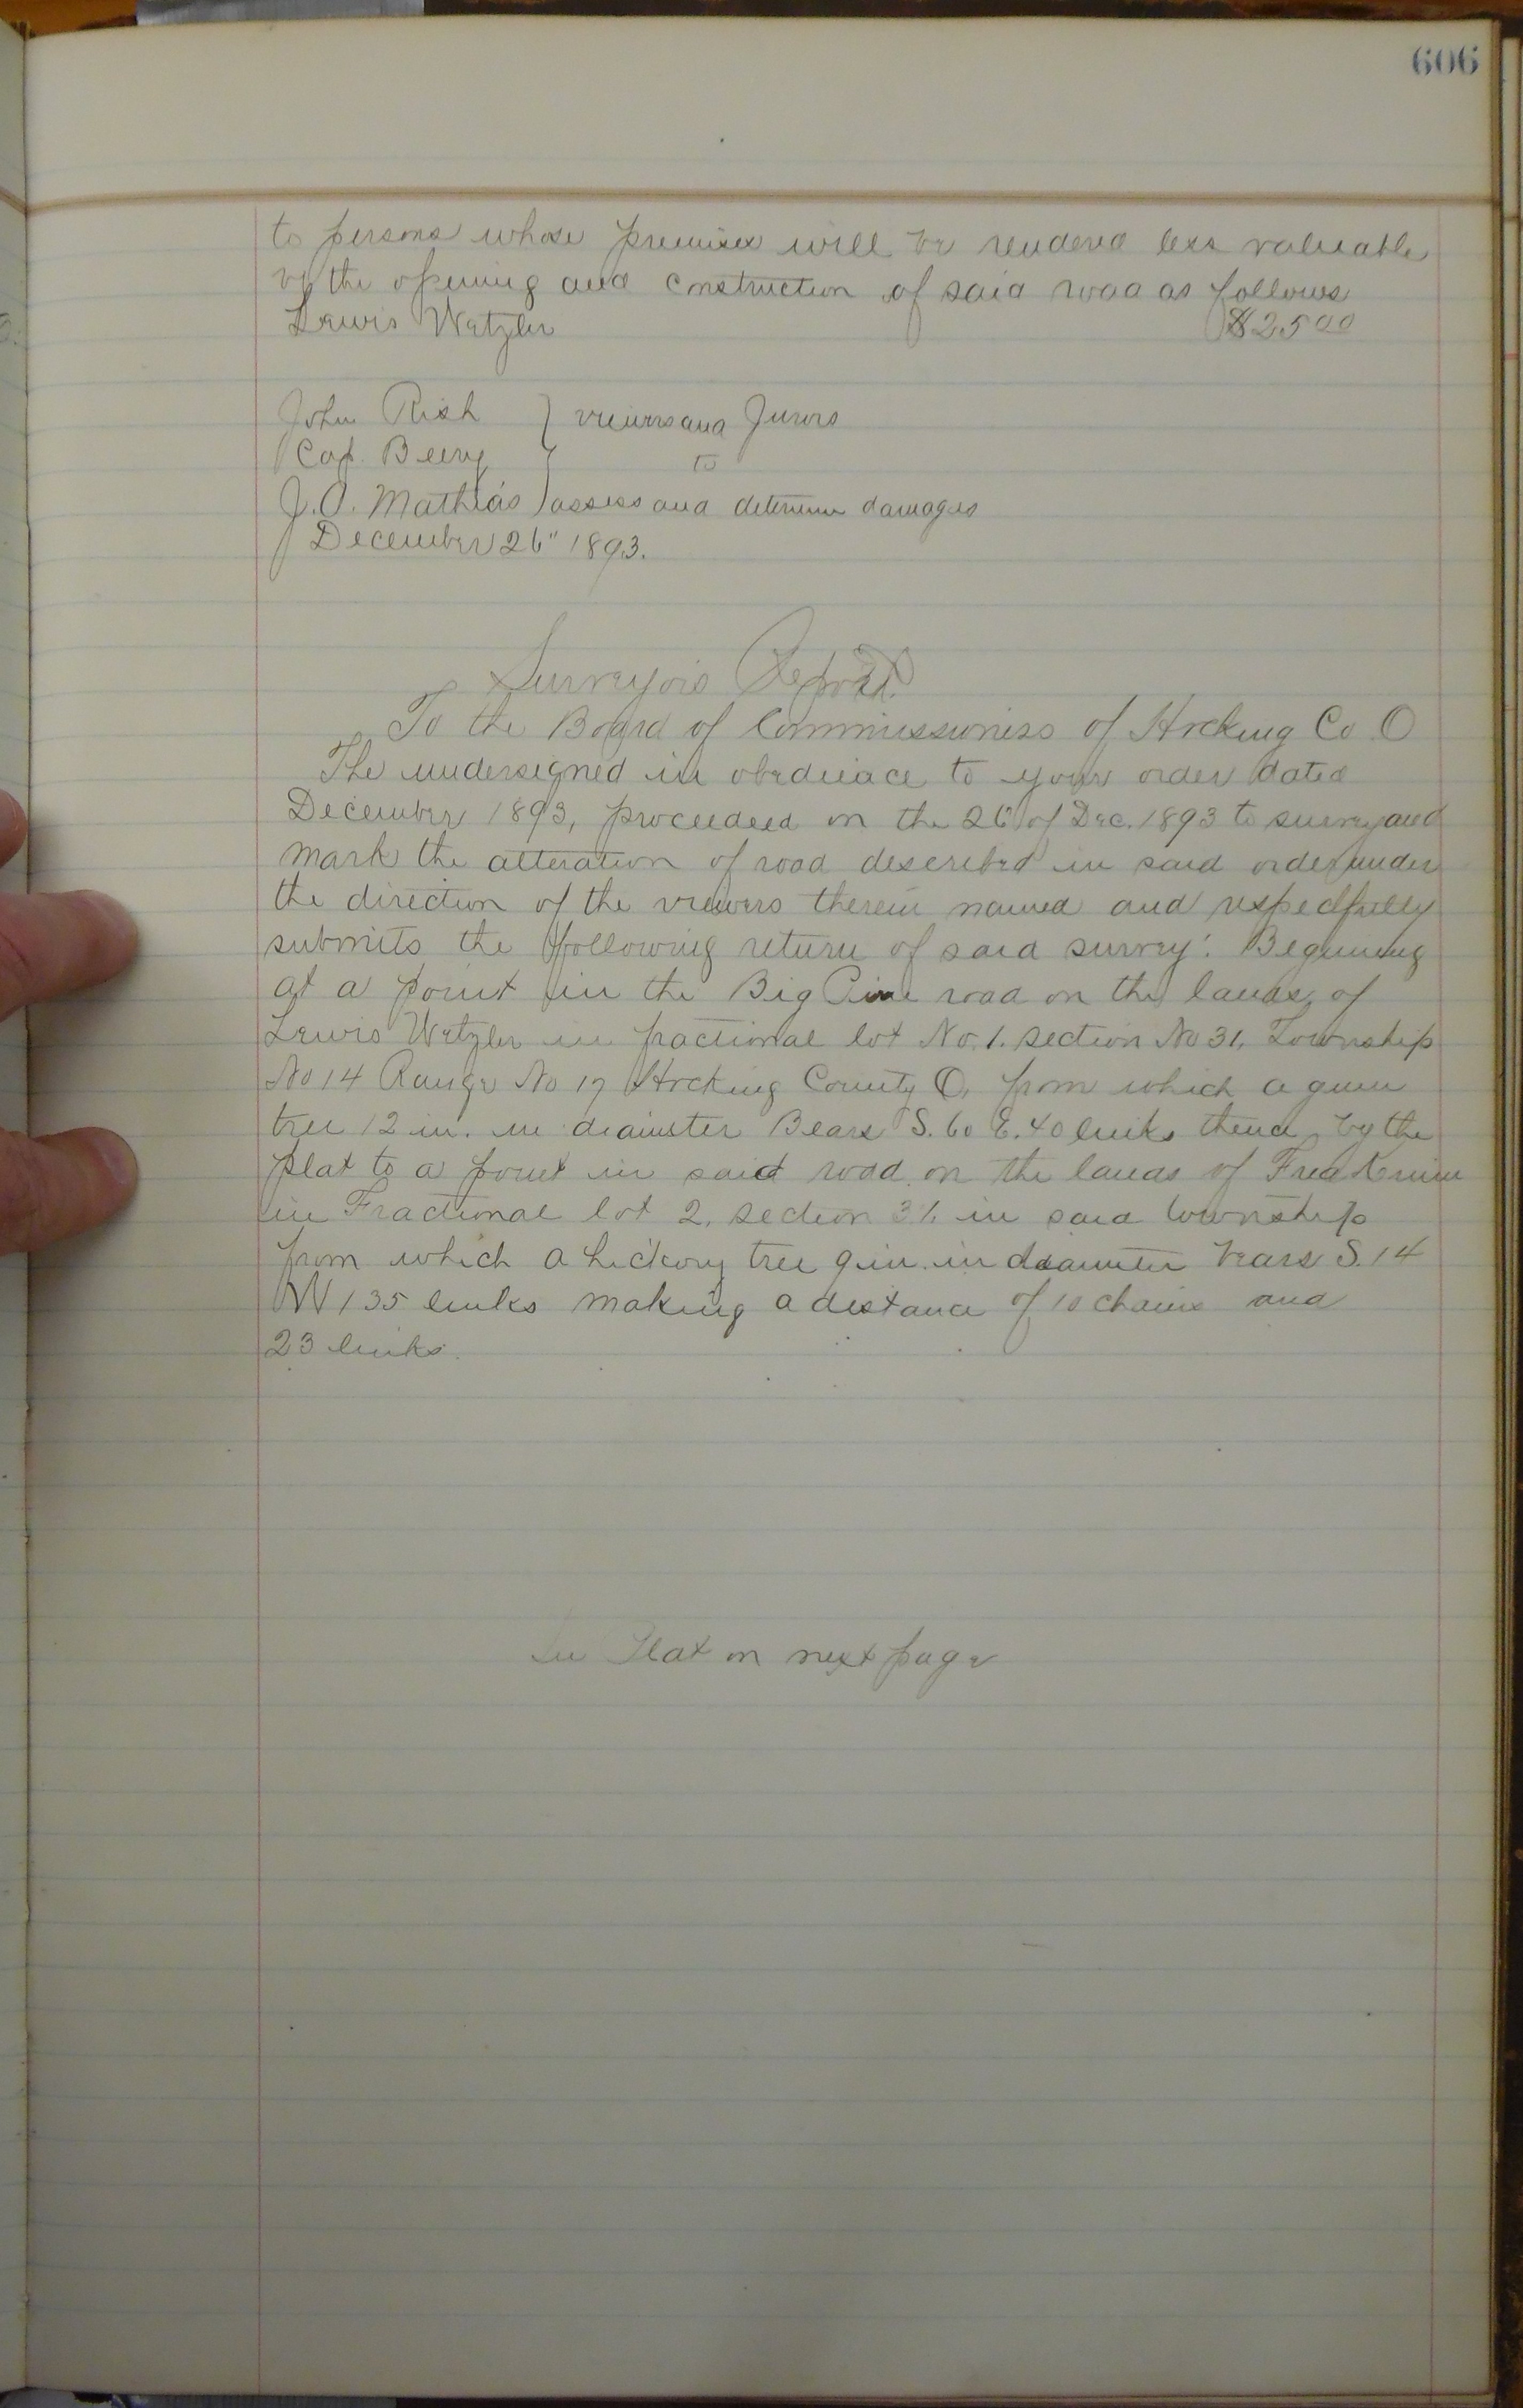 606
to persons whose premises will be rendered less valuable
by the opening and construction of said road as follows
Lewis Wetzler $25 00
John Rish } viewers and Jurors
Cap. Beery to
J. O. Mathias assess and determine damages
December 26" 1893.
Surveyors Report.
To the Board of Commissioners of Hocking Co. O
The undersigned in obediance to your order dated
December 1893, proceeded on the 26 of Dec. 1893 to survey and
mark the alteration of road described in said order under
the direction of the viewers therein named and respectfully
submits the following return of said survey: Beginning
at a point in the Big Pine road on the lands of
Lewis Wetzler in fractional lot No. 1. section No 31, Township
No 14 Range No 17 Hocking County O, from which a gum
tree 12 in. in diameter Bears S. 60 E. 40 links thence by the
plat to a point in said road on the lands of Fred
in Fractional lot 2. section 31. in said township
from which a hickory tree 9 in. in diameter bears S. 14
W 135 links making a distance of 10 chains and
23 links.
See Plat on next page